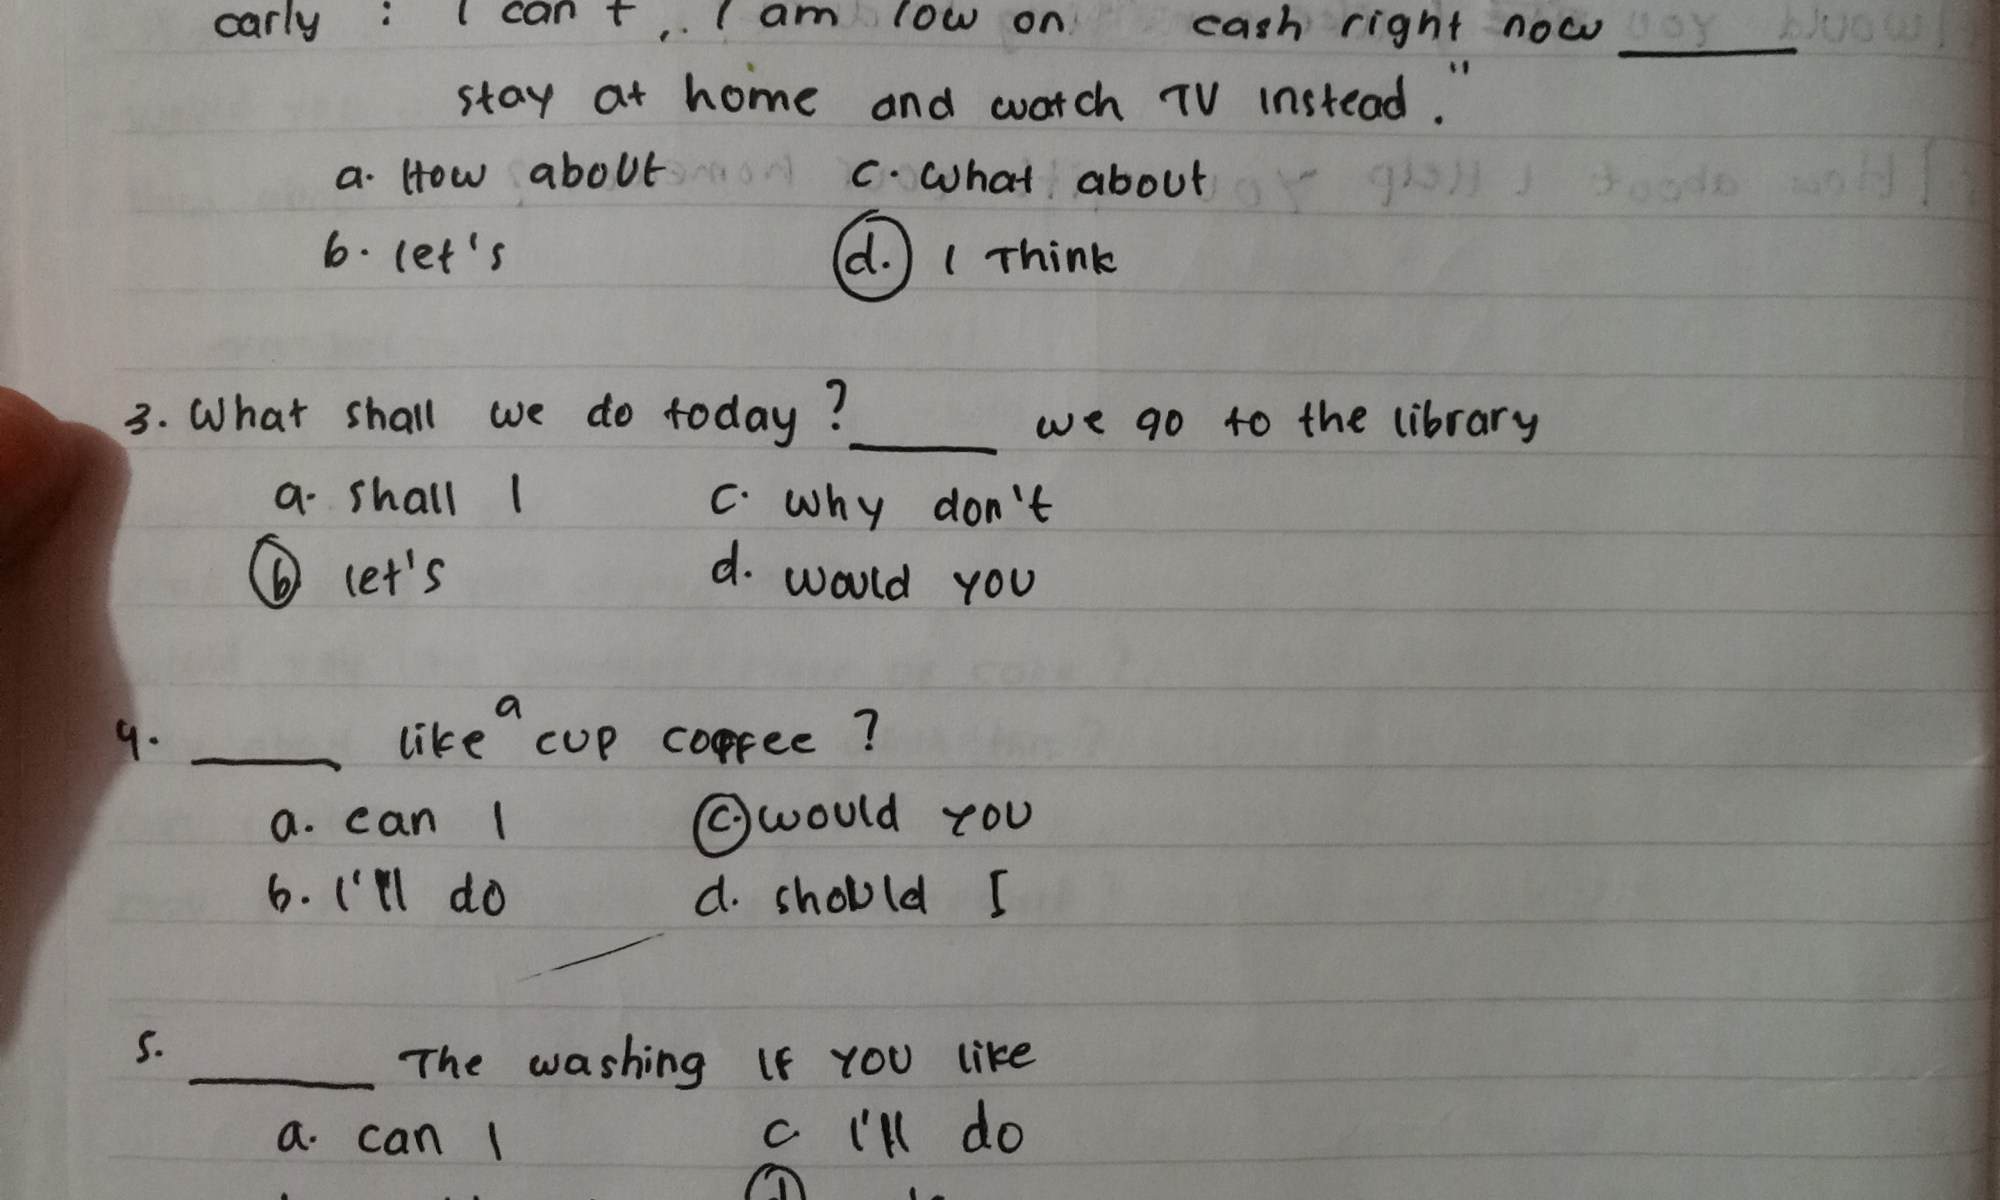 carly : I can't, I am low on cash right now ______
stay at home and watch TV instead."
a. How about c. What about
b. let's d. I Think
3. What shall we do today? ______ we go to the library
a. shall I c. why don't
b let's d. would you
4. ______ like a cup coffee?
a. can I c. would you
b. I'll do d. should I
5. ______ The washing if you like
a. can I c. I'll do